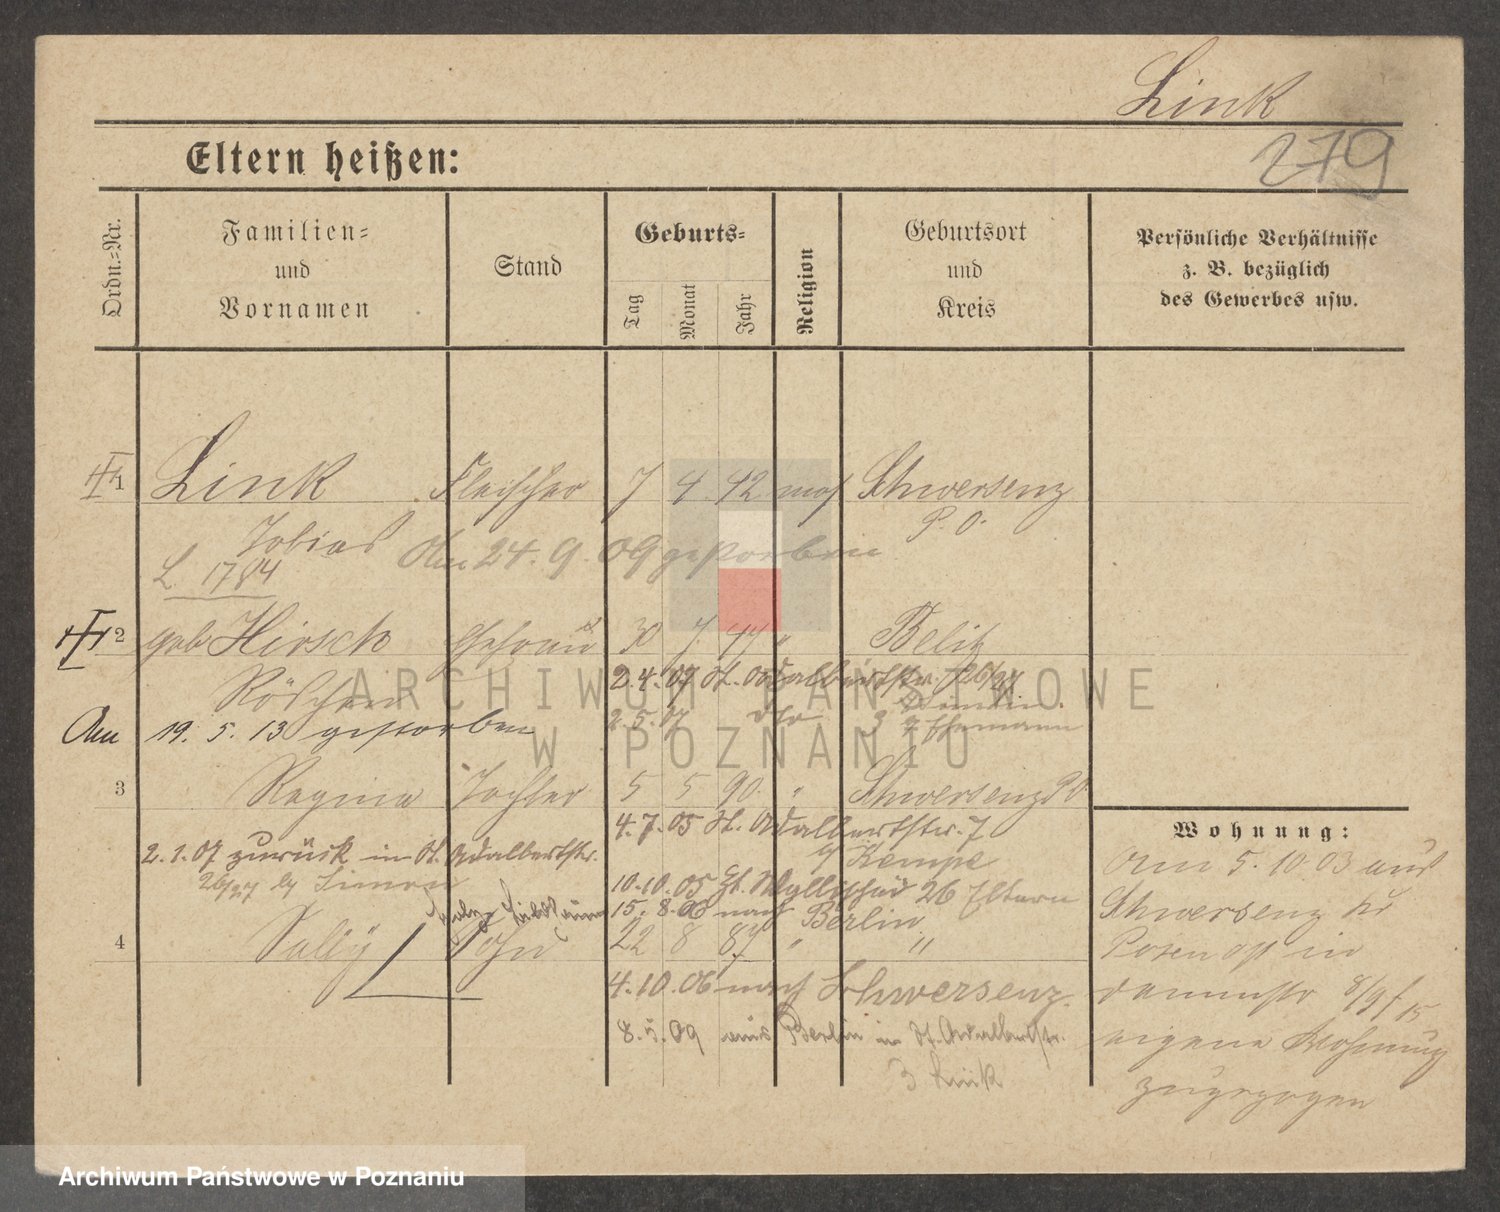 Link
279
Eltern heißen:
Ordn.-Nr.
Familien-
und
Vornamen
Stand
Geburts-
Tag
Monat
Jahr
Religion
Geburtsort
und
Kreis
Persönliche Verhältnisse
z. B. bezüglich
des Gewerbes usw.
1 Link Fleischer 7 4 42 mos Schwersenz
P. O.
Tobias Am 24. 9. 09 gestorben
L 1784
2 geb Hirsch Ehefrau 30 7 47 "
2.4.07 St. Adalbertstr. 26/27
Röschen
2.5.07 dto 3
Am 19. 5. 13 gestorben
3 Regina Tochter 5 5 90. " Schwersenz P O
4.7.05 St. Adalbertstr. 7
b/ Kempe
2.1.07 zurück in St. Adalbertstr.
26/27 b/ Simon
10.10.05 26 Eltern
15. 8. 06 nach Berlin
4 Sally Sohn 22 8 87 " "
4.10.06 nach Schwersenz.
8.5.09 aus Berlin in St. Adalbertstr.
3 Link
Wohnung:
Am 5.10.03 aus
Schwersenz Kr
Posen Ost in
eigene Wohnung
zugezogen
ARCHIWUM PAŃSTWOWE
W POZNANIU
Archiwum Państwowe w Poznaniu